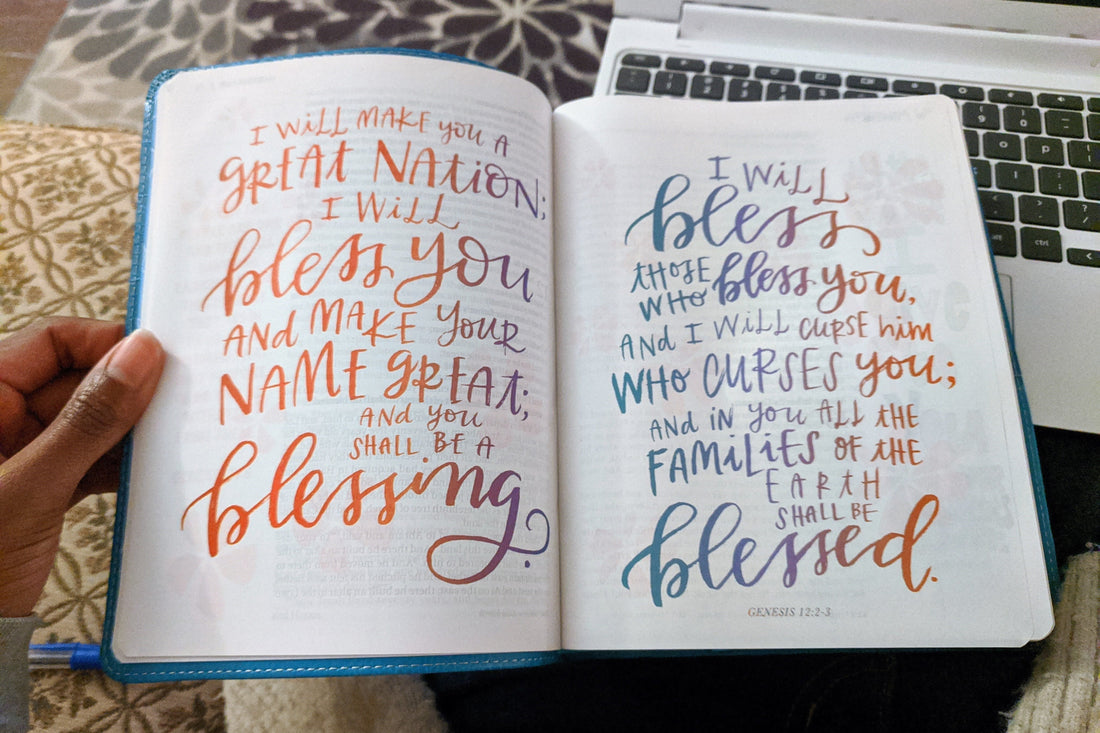 I WILL MAKE YOU A
GREAT NATION;
I WILL
bless you
AND MAKE YOUR
NAME GREAT;
AND YOU
SHALL BE A
blessing.
I WILL
bless
THOSE
WHO bless you,
AND I WILL CURSE him
WHO CURSES you;
AND IN YOU ALL THE
FAMILIES OF THE
EARTH
SHALL BE
blessed.
GENESIS 12:2-3
ctrl
alt